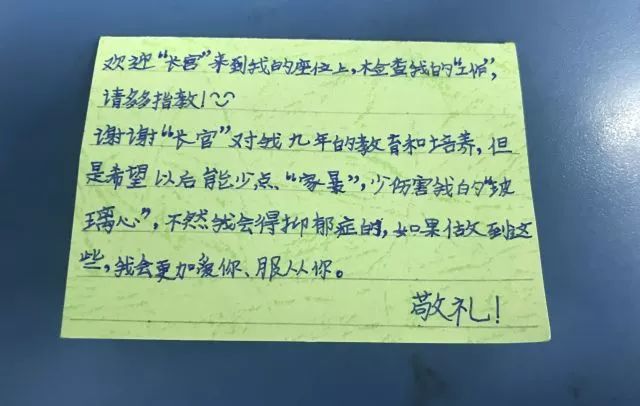 欢迎“长官”来到我的座位上,检查我的“工作”,
请多多指教!
谢谢“长官”对我九年的教育和培养,但
是希望以后能少点“家暴”,少伤害我的“玻
璃心”,不然我会得抑郁症的,如果做到这
些,我会更加爱你、服从你。
敬礼!